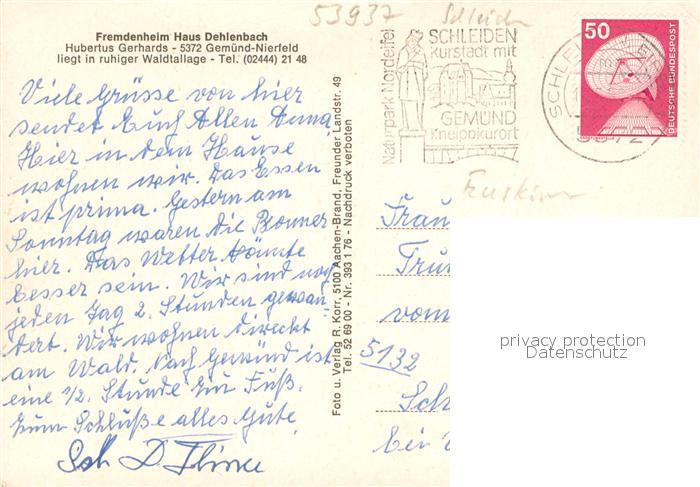 53937 Schleiden
Fremdenheim Haus Dehlenbach
Hubertus Gerhards - 5372 Gemünd-Nierfeld
liegt in ruhiger Waldtallage - Tel. (02444) 21 48
Viele Grüsse von hier
sendet Euch Allen Anna
Hier in dem Hause
wohnen wir. Das Essen
ist prima. Gestern am
Sonntag waren die Bonner
hier. Das Wetter könnte
besser sein. Wir sind noch
jeden Tag 2. Stunden gewan
dert. Wir wohnen direckt
am Wald. Nach Gemünd ist
eine 1/2 Stunde zu Fuß.
Zum Schluße alles Gute
Foto u. Verlag R. Korr, 5100 Aachen-Brand, Freunder Landstr. 49
Tel. 52 69 00 - Nr. 393 1 76 - Nachdruck verboten
Naturpark Nordeifel
SCHLEIDEN
Kurstadt mit
GEMÜND
Kneippkurort
SCHLEI
50
DEUTSCHE BUNDESPOST
Euskirchen
Frau
vom
5132
privacy protection
Datenschutz